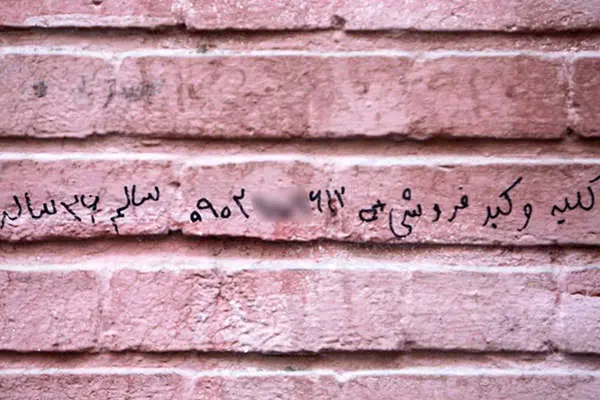 کلیه وکبد فروشی ۰۹۰۲ ۶۱۲ سالم ساله